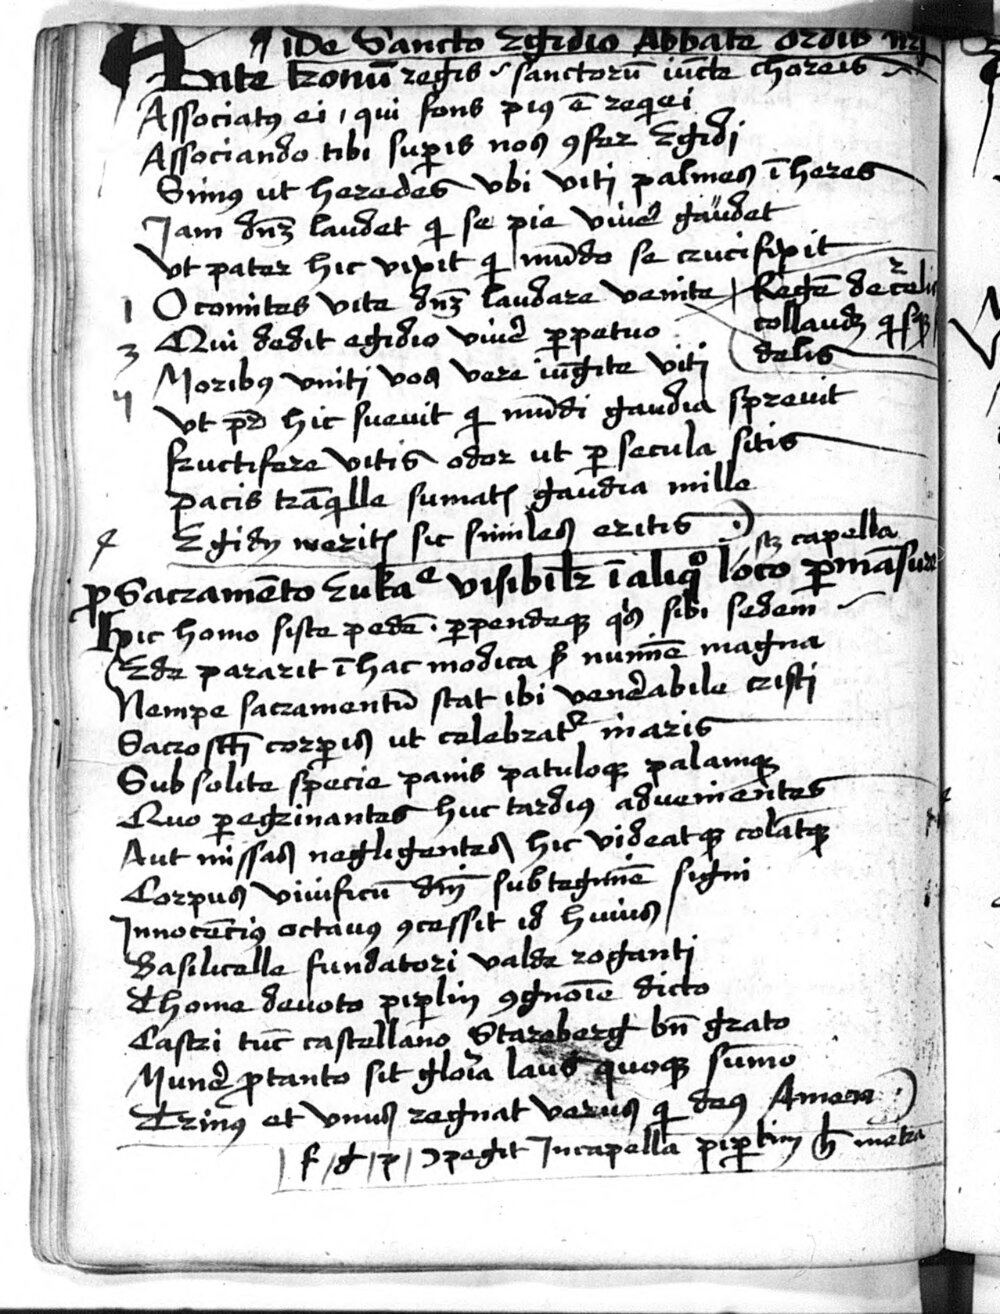 ide Sancto Egidio Abbate ordis nrj
Ante tronū regis sanctorū iuncte choreis
Associatꝰ ei, qui fons piꝰ ē requei
Associando tibi suꝑis nos ꝯfer Egidi
Simꝰ ut heredes vbi viti palmes ī heres
Jam dn̄ꝫ laudet qͥ se pie viuer̄ gaudet
Vt pater hic vixit qͥ mūdo se crucifixit
1 O comites vite dn̄ꝫ laudare venite | Regē de celis
3 Qui dedit egidio viuer̄ ꝑpetuo | collaudꝫ
4 Moribꝰ vniti vos vere iūgite viti | delis
Vt pr̄ hic sueuit qͥ mūdi gaudia spreuit
fructifere vitis odor ut ꝑ secula sitis
pacis trāqͥlle sumatꝭ gaudia mille
Egidij meritꝭ sic similes eritis
stꝫ capella
ꝓ Sacramēto Euka visibilr̄ ī aliqͦ loco ꝑmāsure
Hic homo siste pedē. ꝑpendeqꝫ qͥs sibi sedem
Ede pararit ī hac modica sꝫ numīe magna
Nempe sacramentū stat ibi venerabile cristi
Sacrosctī corꝑis ut celebratͬ in aris
Sub solite specie panis patuloqꝫ palamqꝫ
Quo ꝑegrinantes huc tardiꝰ aduenientes
Aut missas negligentes hic videātqꝫ colātqꝫ
Corpus viuificū dn̄i sub tegmīe signi
Innocēciꝰ octauus ꝯcessit id huius
Basilicelle fundatori valde roganti
Thome deuoto piꝑlin ꝯgnōīe dicto
Castri tūc castellano Starẽberg bn̄ grato
Muner̄ ꝓ tanto sit glōīa laus quoqꝫ summo
Trinꝰ et vnus regnat verus qͥ deꝰ Amen
f g p ꝯpegit In capella piꝑlin h̄ metra